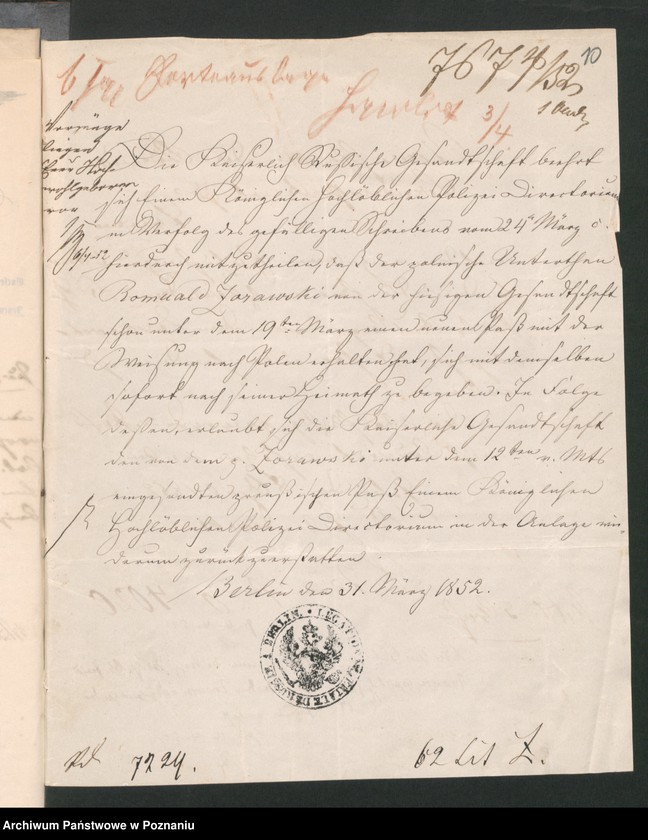 7674/52
10
1 Beil.
3/4
Vorgänge
liegen
Euer Hoch-
wohlgeboren
vor
3/4 52
Die Kaiserlich Russische Gesandtschaft beehrt
sich Einem Königlichen Hochlöblichen Polizei Directorium
in Verfolg des gefälligen Schreibens vom 24t März c.
hierdurch mitzutheilen, daß der polnische Unterthan
Romuald Zorawski von der hiesigen Gesandtschaft
schon unter dem 19ten März einen neuen Paß mit der
Weisung nach Polen erhalten hat, sich mit demselben
sofort nach seiner Heimath zu begeben. In Folge
dessen, erlaubt sich die Kaiserliche Gesandtschaft
den von dem p. Zorawski unter dem 12ten v. Mts
eingesandten preußischen Paß Einem Königlichen
Hochlöblichen Polizei Directorium in der Anlage wie-
derum zurückzuerstatten.
Berlin den 31. März 1852.
LEGATION IMPÉRIALE DE RUSSIE À BERLIN.
7224.
62 Lit Z.
Archiwum Państwowe w Poznaniu